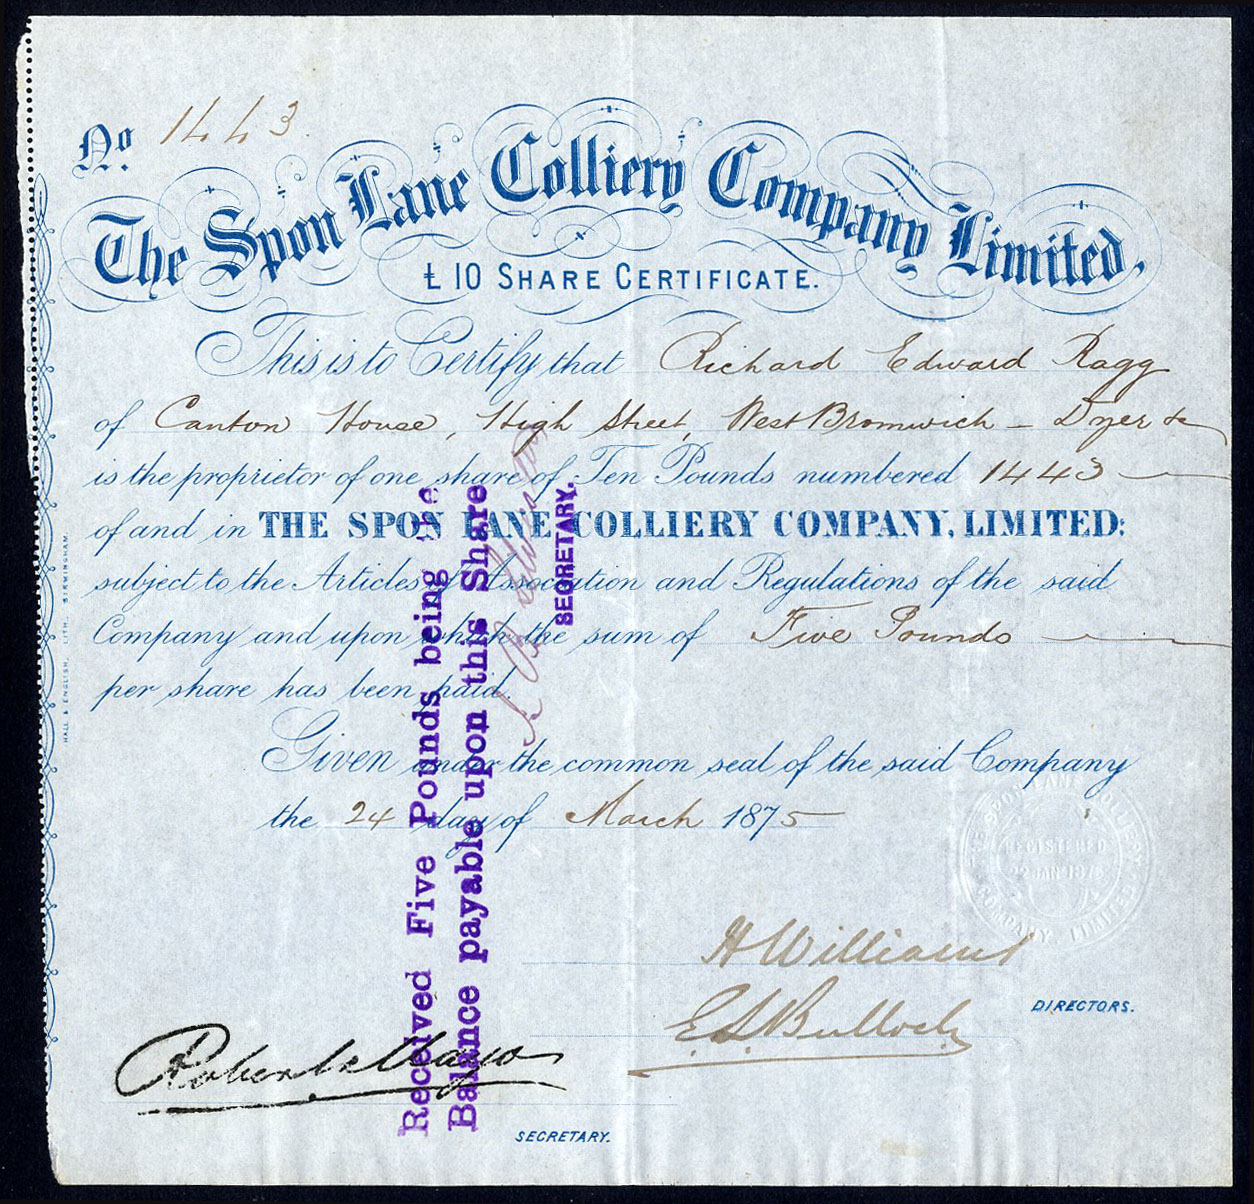 No. 1443
The Spon Lane Colliery Company Limited,
£10 SHARE CERTIFICATE.
This is to Certify that Richard Edward Ragg
of Canton House, High Street, West Bromwich – Dyer &c
is the proprietor of one share of Ten Pounds numbered 1443
of and in THE SPON LANE COLLIERY COMPANY, LIMITED:
subject to the Articles of Association and Regulations of the said
Company and upon which the sum of Five Pounds
per share has been paid.
Given under the common seal of the said Company
the 24 day of March 1875
REGISTERED
22 JAN 1875
H Williams
E. S. Bullock
DIRECTORS.
Robert Mayo
SECRETARY.
Received Five Pounds being the
Balance payable upon this Share
SECRETARY.
HALL & ENGLISH, LITH. BIRMINGHAM.